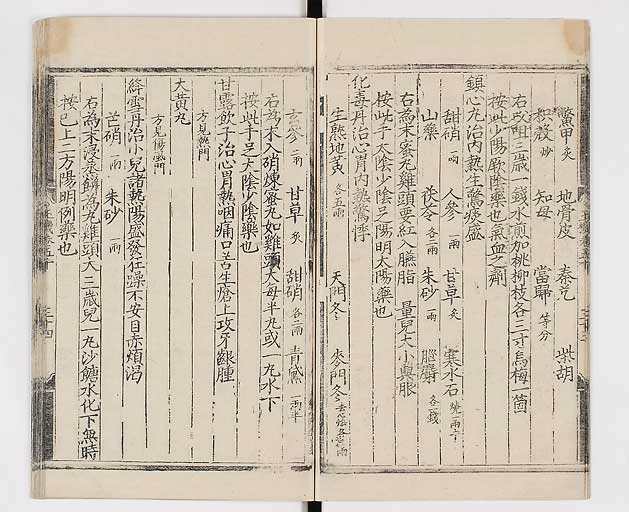 鱉甲 炙 地骨皮 秦艽 柴胡
枳殼 炒 知母 當歸 等分
右㕮咀三歲一錢水煎加桃柳枝各三寸烏梅一箇
按此少陽厥陰藥也氣血之劑
鎮心九治內熱生驚痰盛
甜硝 一兩 人參 一兩 甘草 炙 寒水石 燒一兩半
山藥 茯苓 各二兩 朱砂 一兩 腦麝 各一錢
右為末蜜丸雞頭要紅入臙脂 量兒大小與服
按此手太陰少陰足陽明太陽藥也
化毒丹治心胃內熱驚悸
生熟地黃 各五兩 天門冬 麥門冬
玄參 二兩 甘草 炙 甜硝 各二兩 青黛 一兩半
右為末入硝煉蜜丸如雞頭大每半丸或一丸水下
按此手足太陰少陰藥也
甘露飲子治心胃熱咽痛口舌生瘡上攻牙齦腫
方見熱門
大黃丸
方見傷風門
絳雪丹治小兒諸熱陽盛發狂躁不安目赤煩渴
芒硝 一兩 朱砂 一兩
右為末浸蒸餅為丸雞頭大三歲兒一丸沙糖水化下無時
按已上二方陽明例藥也
三十四